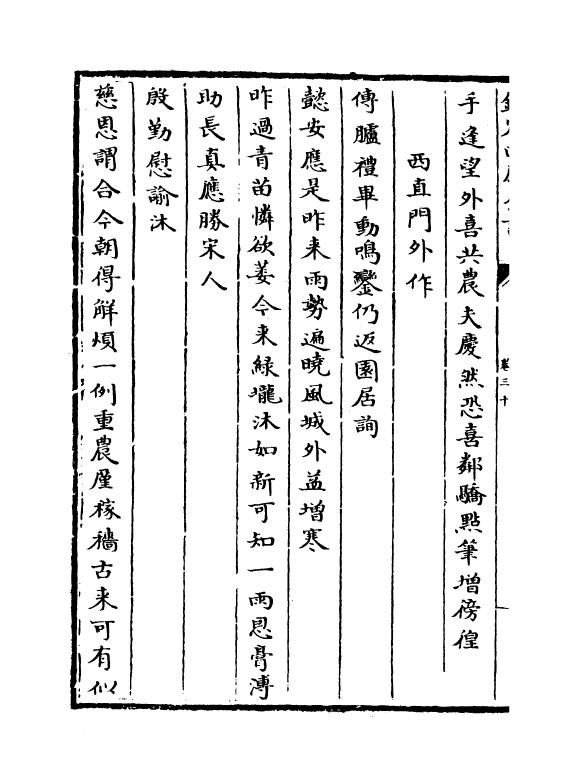 卷三十
手逢望外喜共農夫慶然恐喜鄰驕點筆增徬徨
西直門外作
傳臚禮畢動鳴鑾仍返園居詢
懿安應是昨来雨勢遍曉風城外益增寒
昨過青苗憐欲萎今来綠壠沐如新可知一雨恩膏溥
助長真應勝宋人
殷勤慰諭沐
慈恩謂合今朝得解煩一例重農廑稼穡古来可有似